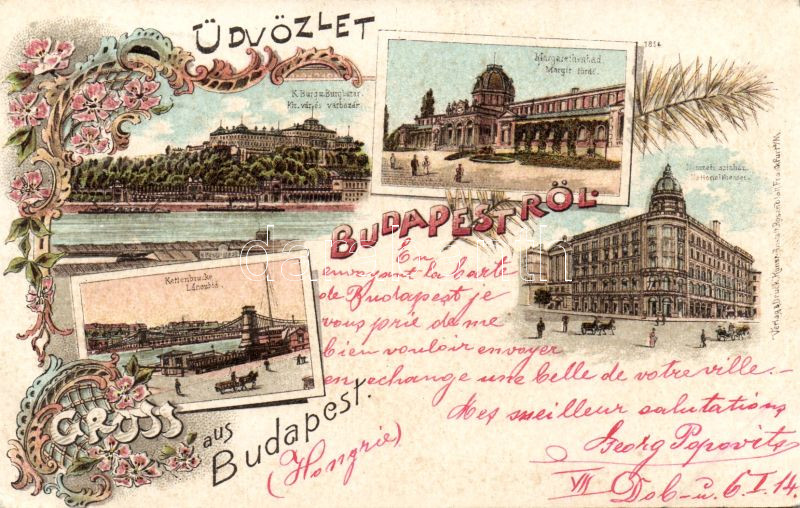 ÜDVÖZLET
BUDAPESTRŐL.
K. Burg u. Burgbazar.
Kir. vár és várbazár.
Margarethenbad.
Margit fürdő.
1814
Nemzeti szinház.
Nationaltheater.
Kettenbrücke
Lánczhíd
GRUSS
aus
Budapest.
(Hongrie)
En
envoyant la carte
de Budapest je
vous prie de me
bien vouloir envoyer
en echange une belle de votre ville.-
Mes meilleur salutations
Georg Popovits
VII Dob-u. 6. I. 14.